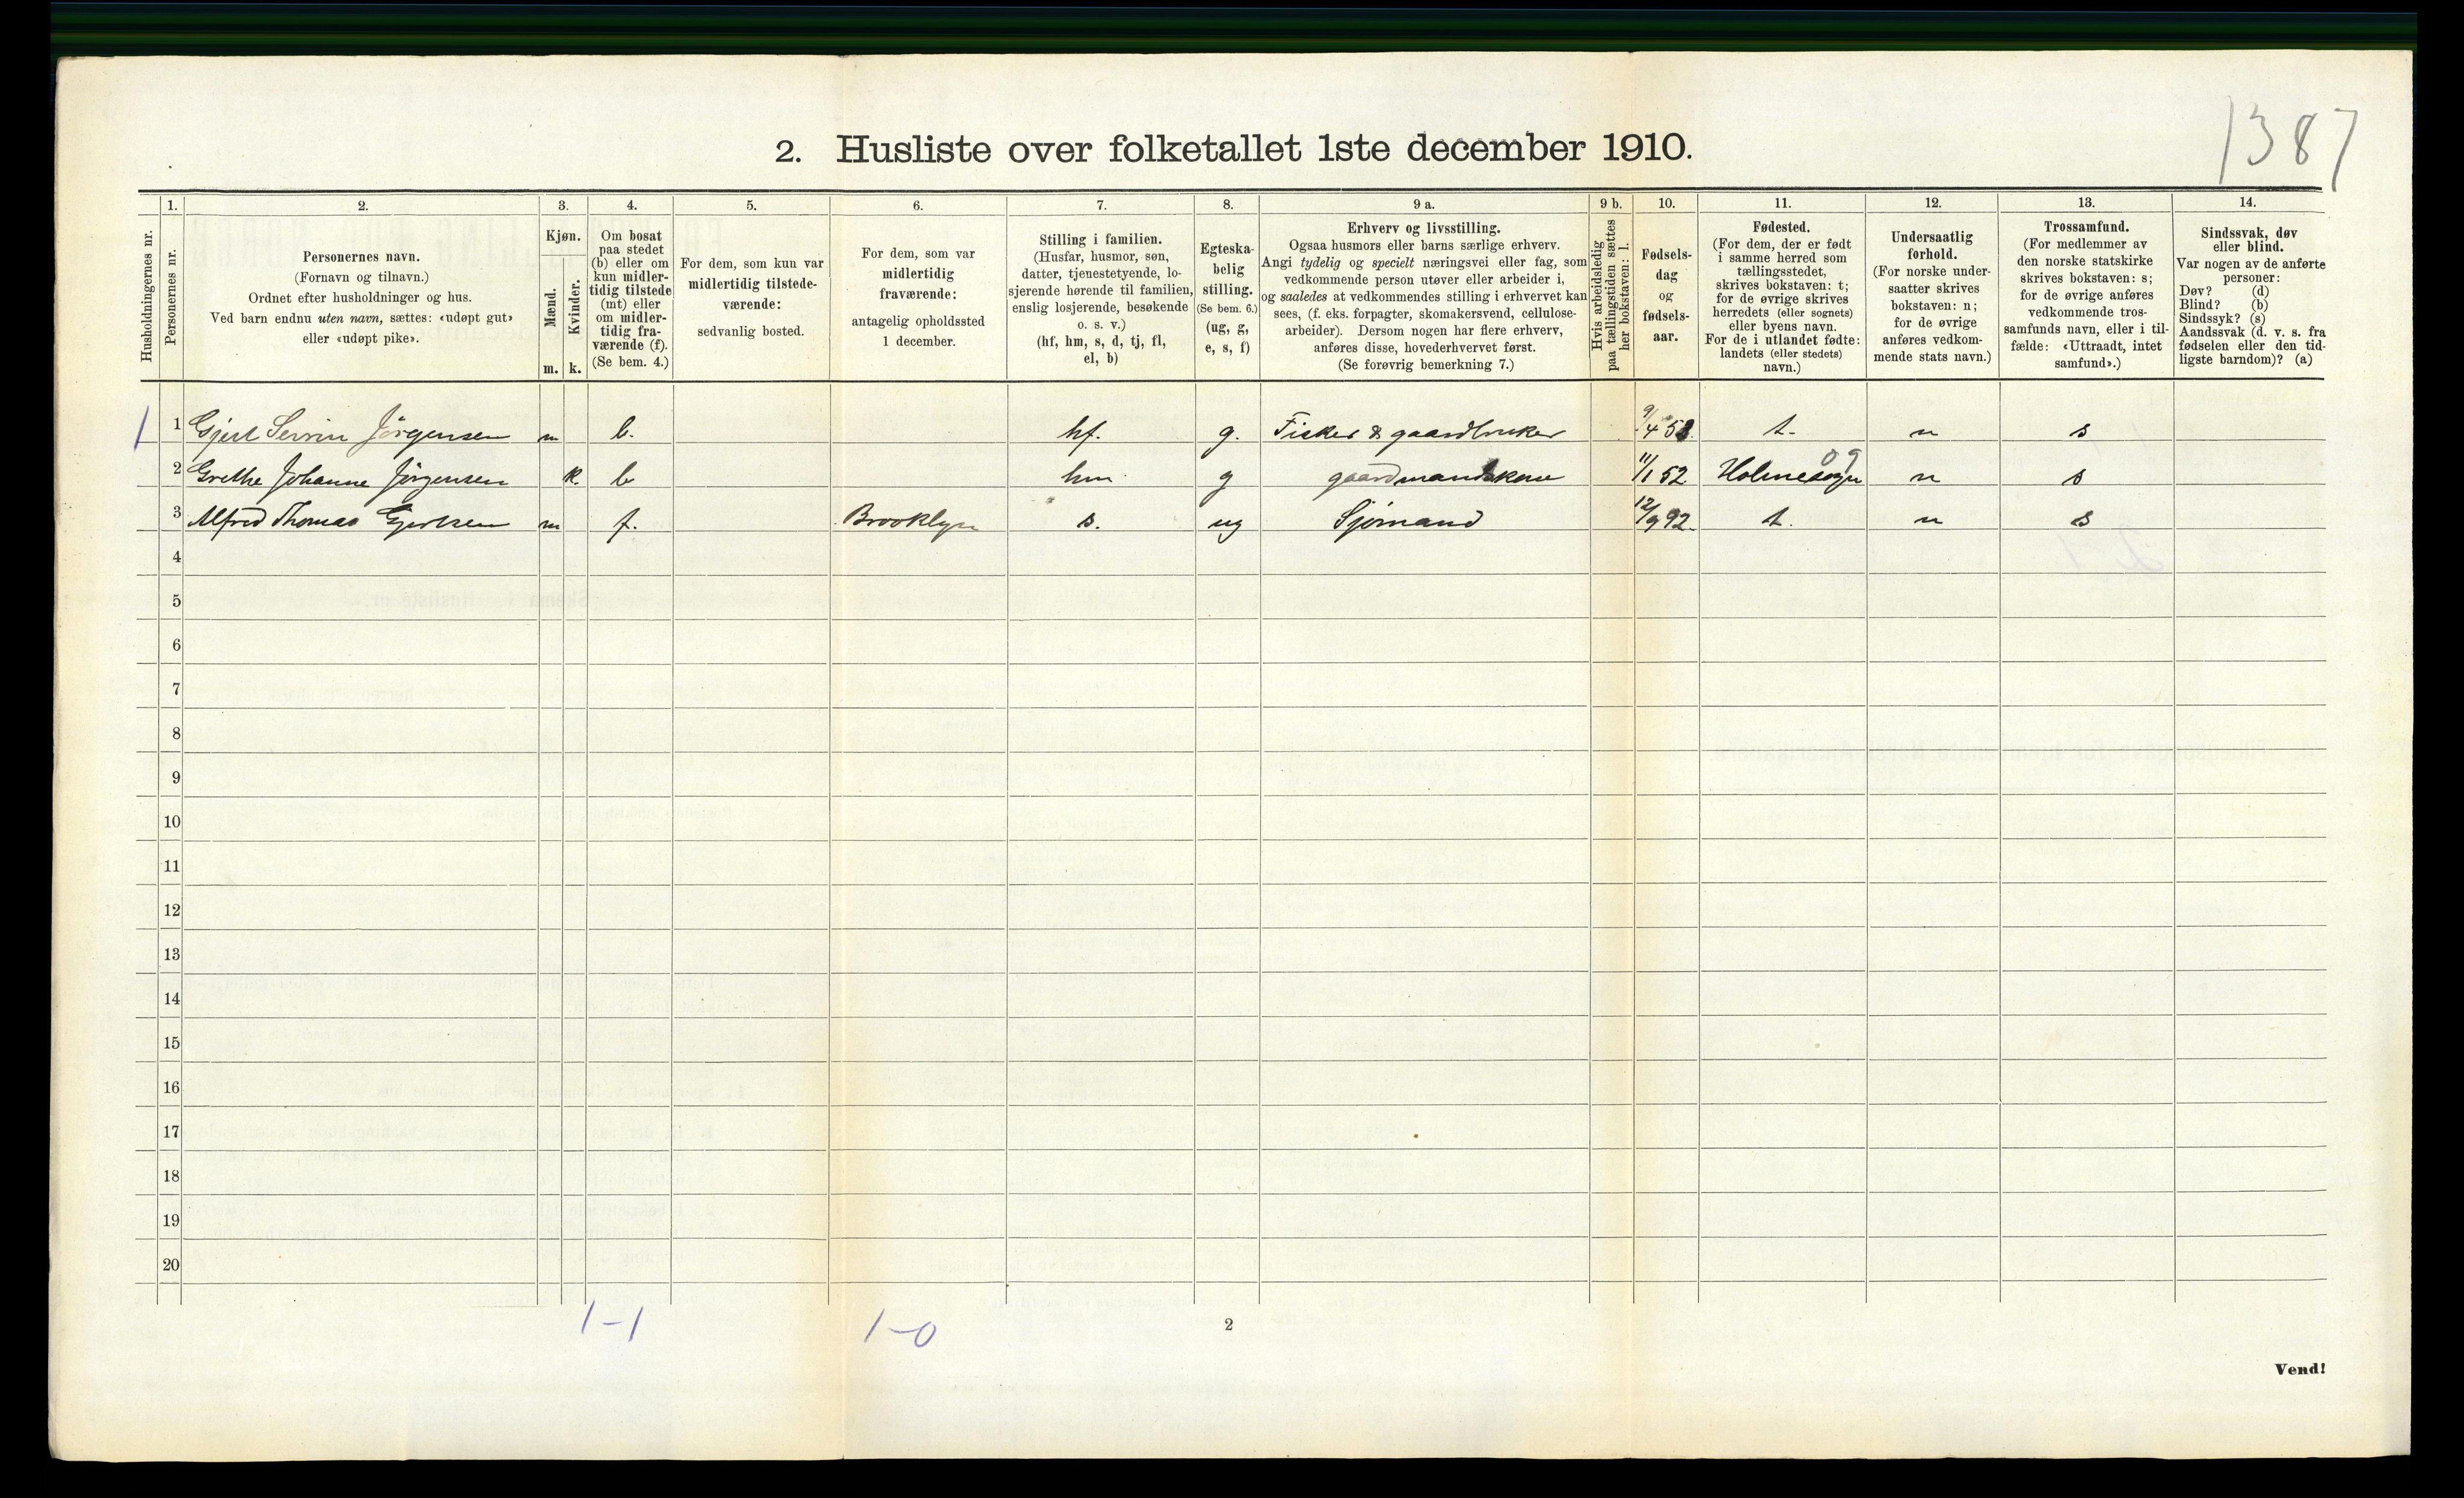 1387
2. Husliste over folketallet 1ste december 1910.
Husholdningernes nr.
1.
Personernes nr.
2.
Personernes navn.
(Fornavn og tilnavn.)
Ordnet efter husholdninger og hus.
Ved barn endnu uten navn, sættes: «udøpt gut»
eller «udøpt pike».
3.
Kjøn.
Mænd.
Kvinder.
m. k.
4.
Om bosat
paa stedet
(b) eller om
kun midler-
tidig tilstede
(mt) eller
om midler-
tidig fra-
værende (f).
(Se bem. 4.)
5.
For dem, som kun var
midlertidig tilstede-
værende:
sedvanlig bosted.
6.
For dem, som var
midlertidig
fraværende:
antagelig opholdssted
1 december.
7.
Stilling i familien.
(Husfar, husmor, søn,
datter, tjenestetyende, lo-
sjerende hørende til familien,
enslig losjerende, besøkende
o. s. v.)
(hf, hm, s, d, tj, fl,
el, b)
8.
Egteska-
belig
stilling.
(Se bem. 6.)
(ug, g,
e, s, f)
9 a.
Erhverv og livsstilling.
Ogsaa husmors eller barns særlige erhverv.
Angi tydelig og specielt næringsvei eller fag, som
vedkommende person utøver eller arbeider i,
og saaledes at vedkommendes stilling i erhvervet kan
sees, (f. eks. forpagter, skomakersvend, cellulose-
arbeider). Dersom nogen har flere erhverv,
anføres disse, hovederhvervet først.
(Se forøvrig bemerkning 7.)
9 b.
Hvis arbeidsledig
paa tællingstiden sættes
her bokstaven: l.
10.
Fødsels-
dag
og
fødsels-
aar.
11.
Fødested.
(For dem, der er født
i samme herred som
tællingsstedet,
skrives bokstaven: t;
for de øvrige skrives
herredets (eller sognets)
eller byens navn.
For de i utlandet fødte:
landets (eller stedets)
navn.)
12.
Undersaatlig
forhold.
(For norske under-
saatter skrives
bokstaven: n;
for de øvrige
anføres vedkom-
mende stats navn.)
13.
Trossamfund.
(For medlemmer av
den norske statskirke
skrives bokstaven: s;
for de øvrige anføres
vedkommende tros-
samfunds navn, eller i til-
fælde: «Uttraadt, intet
samfund».)
14.
Sindssvak, døv
eller blind.
Var nogen av de anførte
personer:
Døv? (d)
Blind? (b)
Sindssyk? (s)
Aandssvak (d. v. s. fra
fødselen eller den tid-
ligste barndom)? (a)
1 1 Gjert Jörgensen m b. hf. g. Fisker & gaardbruker 9/4 t. n s
2 Grethe Johanne Jörgensen k. b hm g gaardmandskone 11/1 52 Holmesogn 09 n s
3 Alfred Thomas Gjertsen m f. Brooklyn s. ug Sjömand 12/9 92. t. n s
4
5
6
7
8
9
10
11
12
13
14
15
16
17
18
19
20
1-1 1-0
2
Vend!